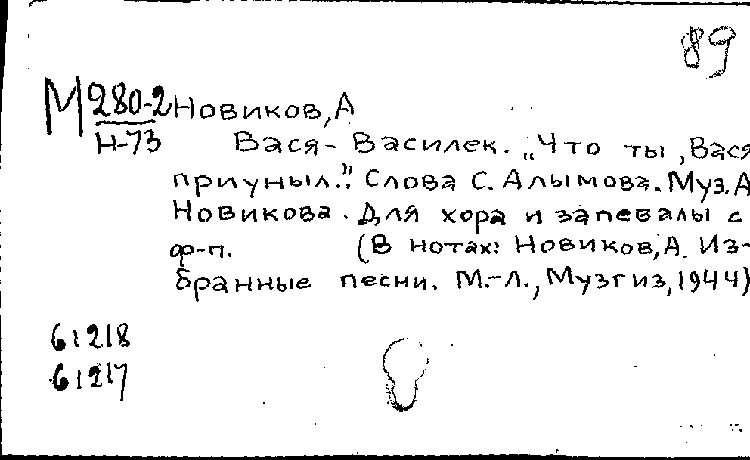 89
М 280-2 Новиков, А
Н-73 Вася-Василек. „Что ты, Вася
приуныл.." Слова С. Алымова. Муз. А
Новикова. Для хора и запевалы с
ф-п. (В нотах: Новиков, А. Из-
бранные песни. М.-Л., Музгиз, 1944)
61218
61217